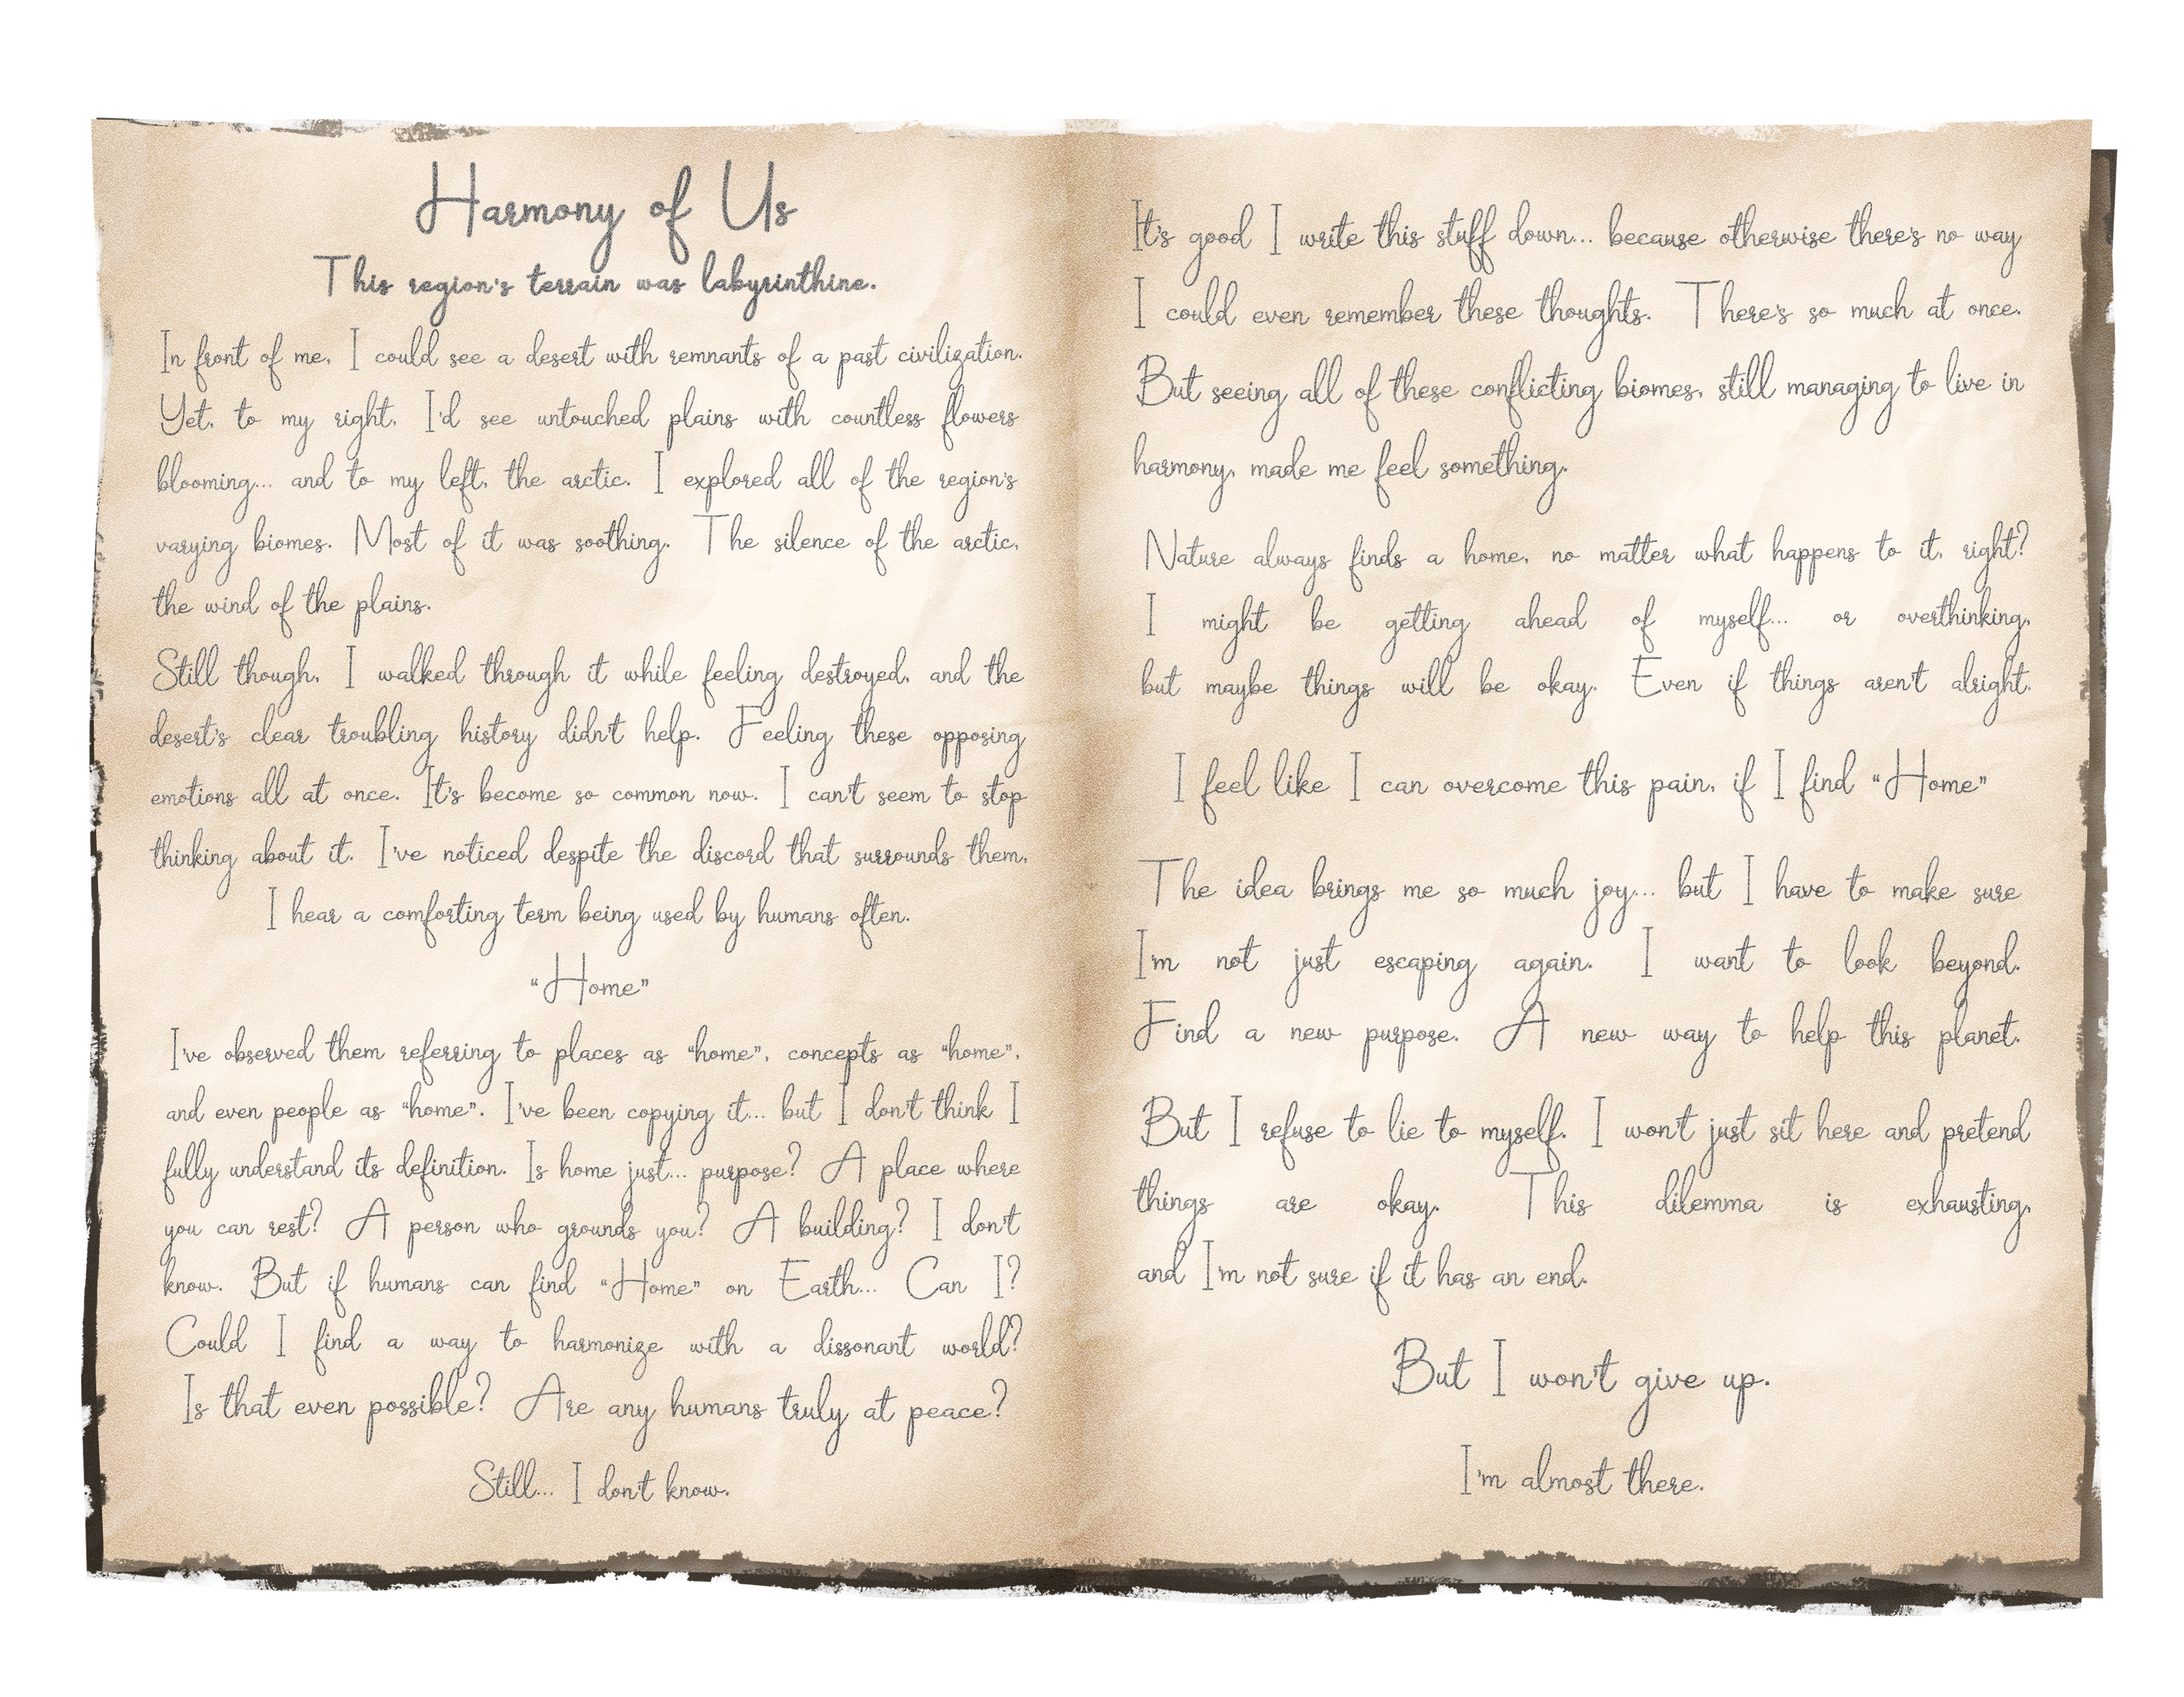 Harmony of Us
This region's terrain was labyrinthine.
In front of me, I could see a desert with remnants of a past civilization.
Yet, to my right, I'd see untouched plains with countless flowers
blooming... and to my left, the arctic. I explored all of the region's
varying biomes. Most of it was soothing. The silence of the arctic,
the wind of the plains.
Still though, I walked through it while feeling destroyed, and the
desert's clear troubling history didn't help. Feeling these opposing
emotions all at once. It's become so common now. I can't seem to stop
thinking about it. I've noticed despite the discord that surrounds them,
I hear a comforting term being used by humans often.
“Home”
I've observed them referring to places as “home”, concepts as “home”,
and even people as “home”. I've been copying it... but I don't think I
fully understand its definition. Is home just... purpose? A place where
you can rest? A person who grounds you? A building? I don't
know. But if humans can find “Home” on Earth... Can I?
Could I find a way to harmonize with a dissonant world?
Is that even possible? Are any humans truly at peace?
Still... I don't know.
It's good I write this stuff down... because otherwise there's no way
I could even remember these thoughts. There's so much at once.
But seeing all of these conflicting biomes, still managing to live in
harmony, made me feel something.
Nature always finds a home, no matter what happens to it, right?
I might be getting ahead of myself... or overthinking,
but maybe things will be okay. Even if things aren't alright.
I feel like I can overcome this pain, if I find “Home”
The idea brings me so much joy... but I have to make sure
I'm not just escaping again. I want to look beyond.
Find a new purpose. A new way to help this planet.
But I refuse to lie to myself. I won't just sit here and pretend
things are okay. This dilemma is exhausting,
and I'm not sure if it has an end.
But I won't give up.
I'm almost there.